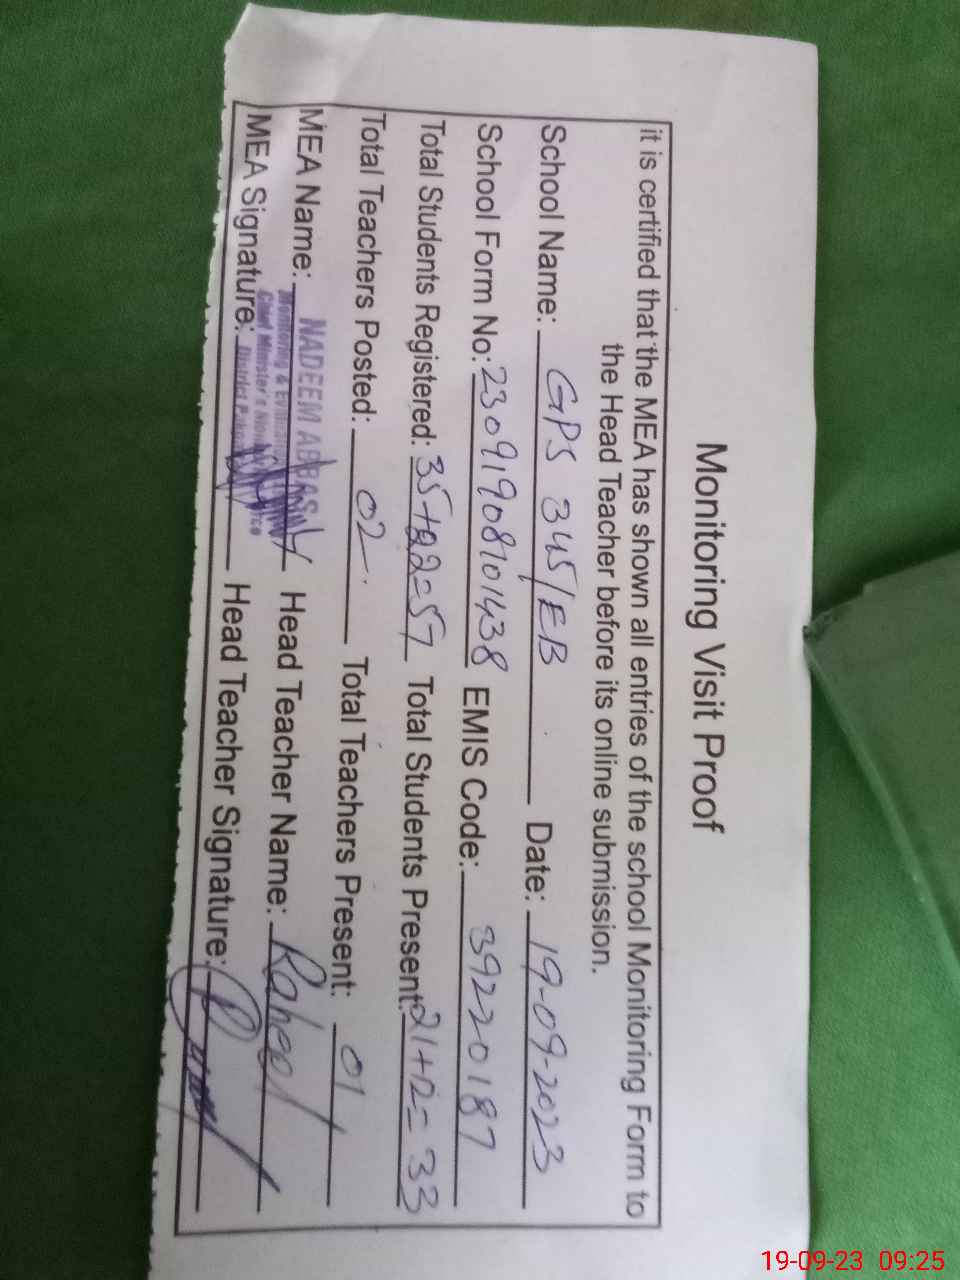 Monitoring Visit Proof
it is certified that the MEA has shown all entries of the school Monitoring Form to
the Head Teacher before its online submission.
School Name: GPS 345/EB Date: 19-09-2023
School Form No: 23091908101438 EMIS Code: 39220187
Total Students Registered: 35+22=57 Total Students Present: 21+12=33
Total Teachers Posted: 02 Total Teachers Present: 01
MEA Name: NADEEM ABBAS Head Teacher Name: Raheel
Monitoring &
MEA Signature: Head Teacher Signature:
Chief Minister's
District
19-09-23 09:25